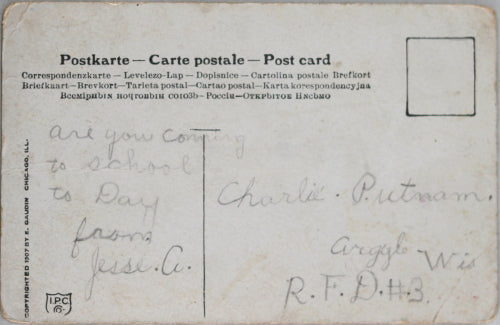 Postkarte — Carte postale — Post card
Correspondenzkarte — Levelezo-Lap — Dopisnice — Cartolina postale Brefkort
Briefkaart — Brevkort — Tarjeta postal — Cartao postal — Karta korespondencyjna
Всемірнвін почтоввін союзъ — Россіи — Открытое Письмо
are you coming
to school
to Day
from
Jesse. A.
Charlie. Putnam.
Argyle Wis
R. F. D. #3.
COPYRIGHTED 1907 BY E. GAUDIN CHICAGO, ILL.
I.P.C